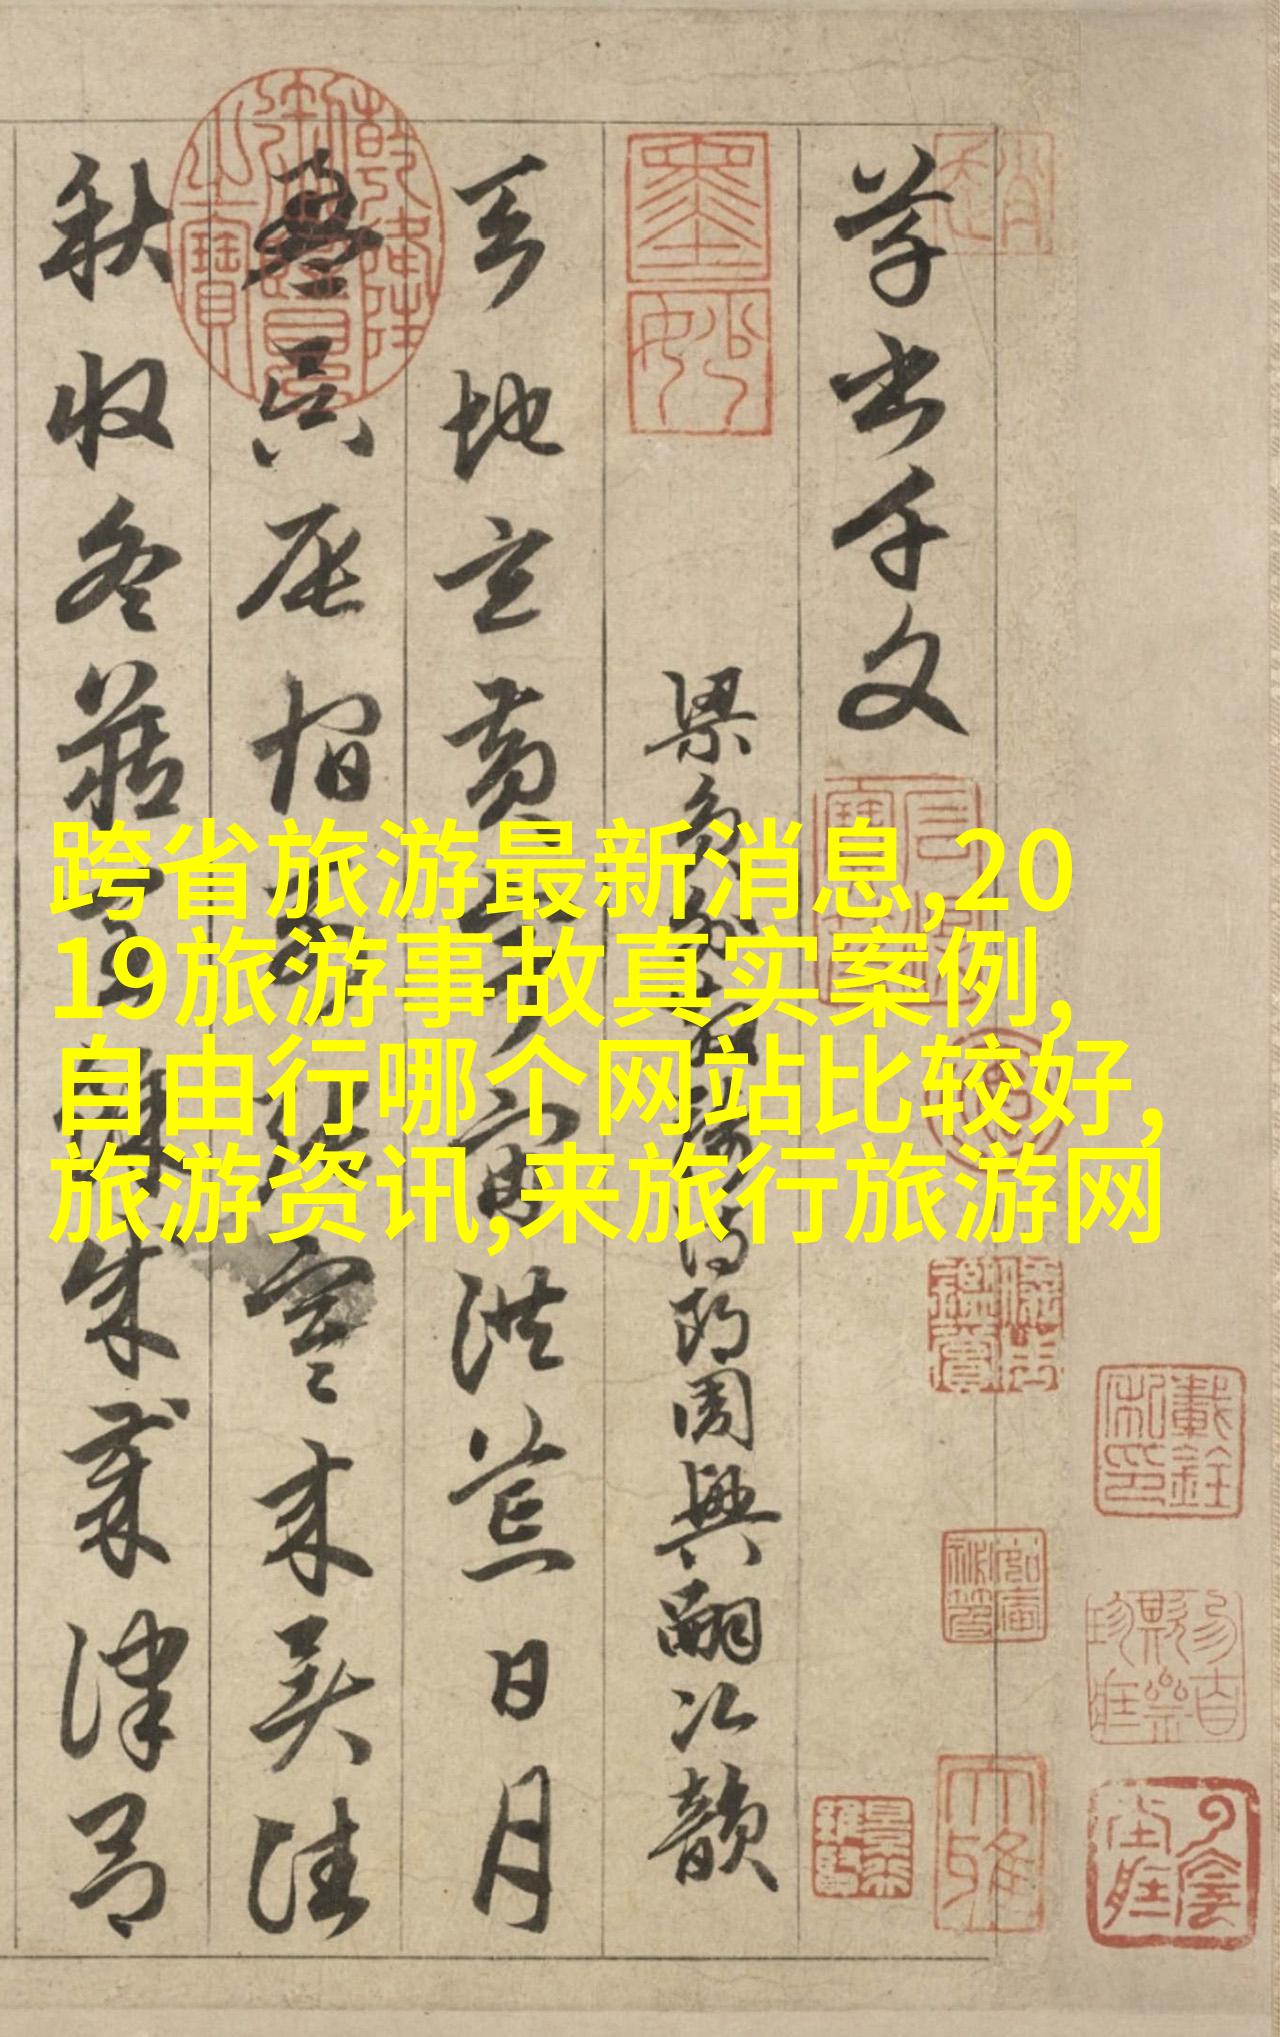 跨省旅游最新消息,20
19旅游事故真实案例,
自由行哪个网站比较好,
旅游资讯,来旅行旅游网
草書千文
梁員外散騎侍郎周興嗣次韻
天地玄黃宇宙洪荒日月
盈昃辰宿列張寒來暑往
秋收冬藏閏餘成歲律呂
墨妙
乾隆御覽之寶
大雅